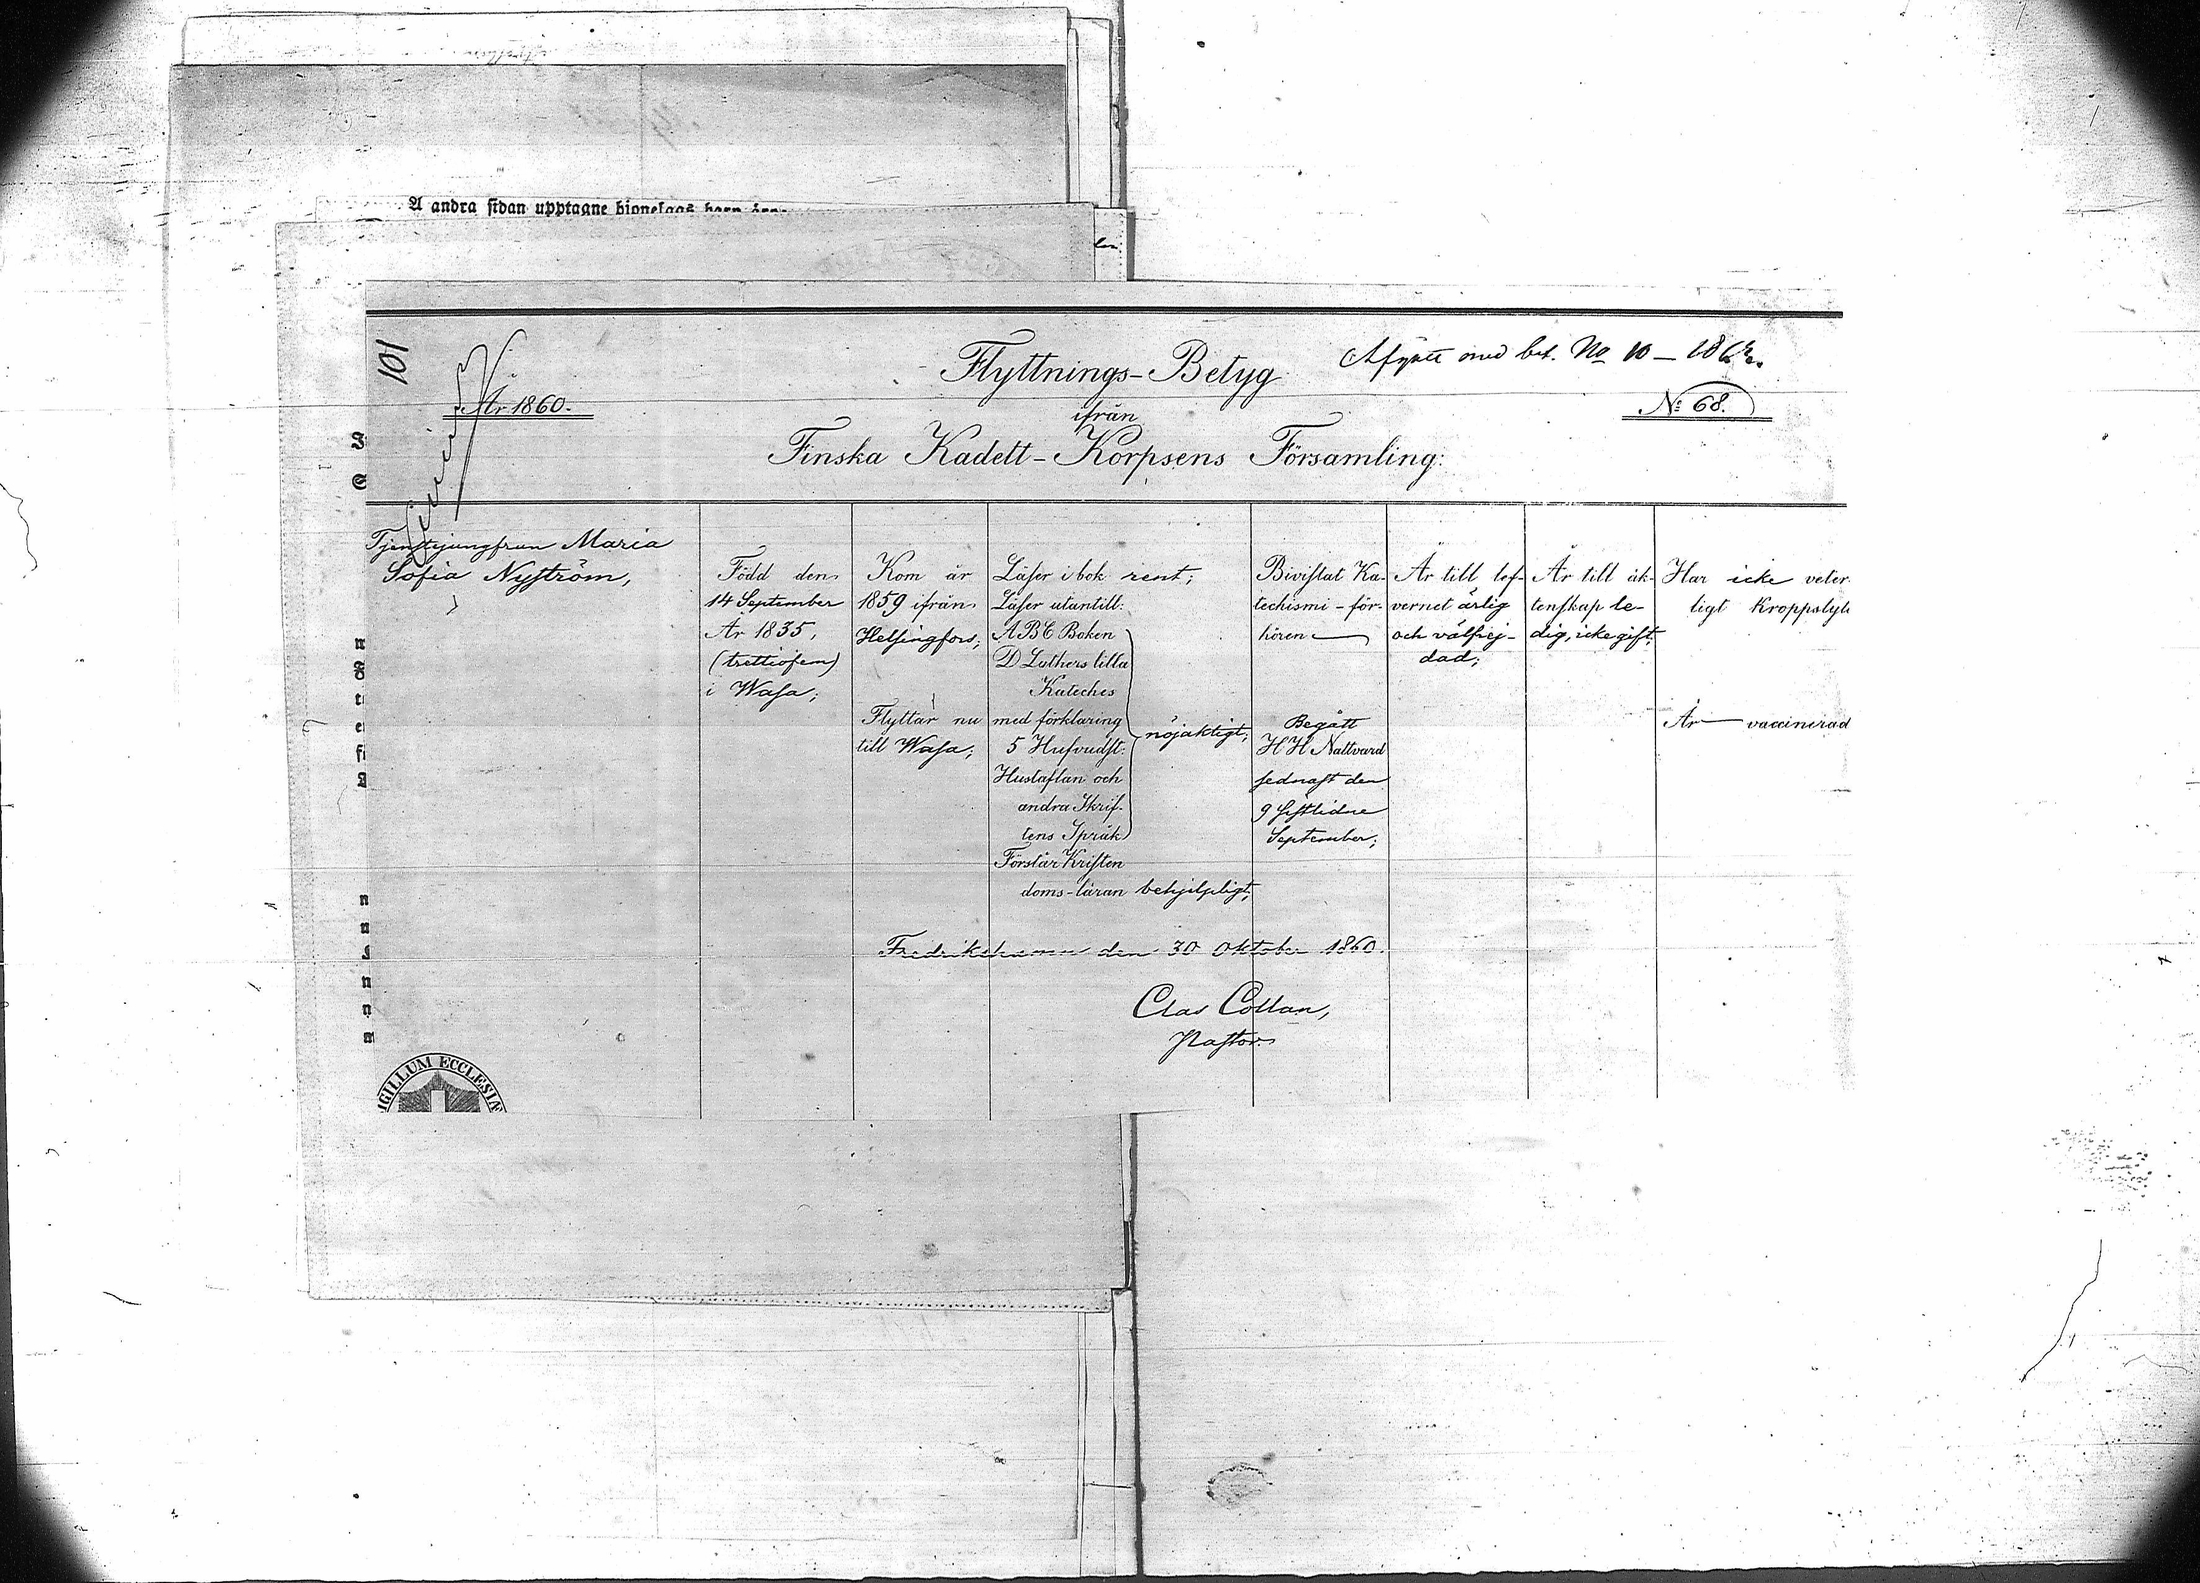 A andra sidan upptagne
101
Afgått med bet. No 10 – 186
År 1860.
Flyttnings-Betyg
No 68.
ifrån
Finska Kadett-Korpsens Församling:
Tjenstejungfrun Maria
Sofia Nyström,
Född den
14 September
År 1835,
(trettiofem)
i Wasa;
Kom år
1859 ifrån
Helsingfors;
Flyttar nu
till Wasa;
Läser i bok rent;
Läser utantill:
ABC Boken
D Luthers lilla
Kateches
med förklaring
5 Hufvudst:
Hustaflan och
andra Skrif-
tens Språk
nöjaktigt;
Förstår Kristen
doms-läran behjelpligt;
Bivistat Ka-
techismi-för-
hören
Begått
H H Nattvard
sednast den
9 sistlidne
September;
Är till lef-
vernet ärlig
och välfrej-
dad;
Är till äk-
tenskap le-
dig, icke gift;
Har icke veter-
ligt Kroppslyt
Är vaccinerad
Fredrikshamn den 30 Oktober 1860.
Clas Collan,
Pastor.
SIGILLUM ECCLESIÆ